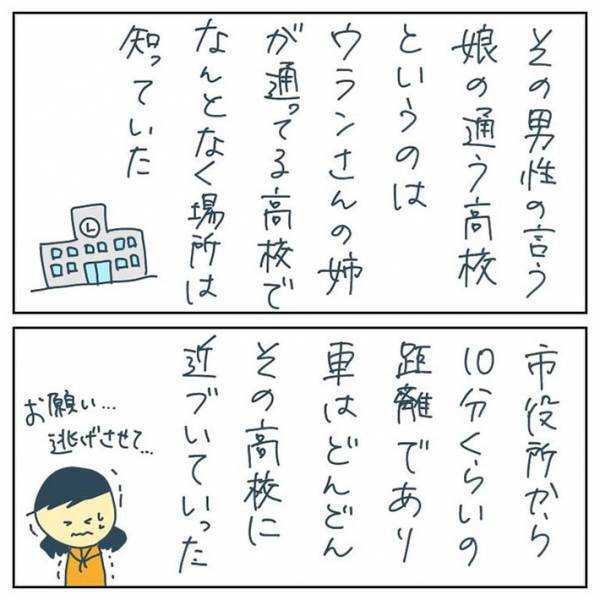 その男性の言う
娘の通う高校
というのは
ウランさんの姉
が通ってる高校で
なんとなく場所は
知っていた
市役所から
10分くらいの
距離であり
車はどんどん
その高校に
近づいていった
お願い…
逃げさせて…